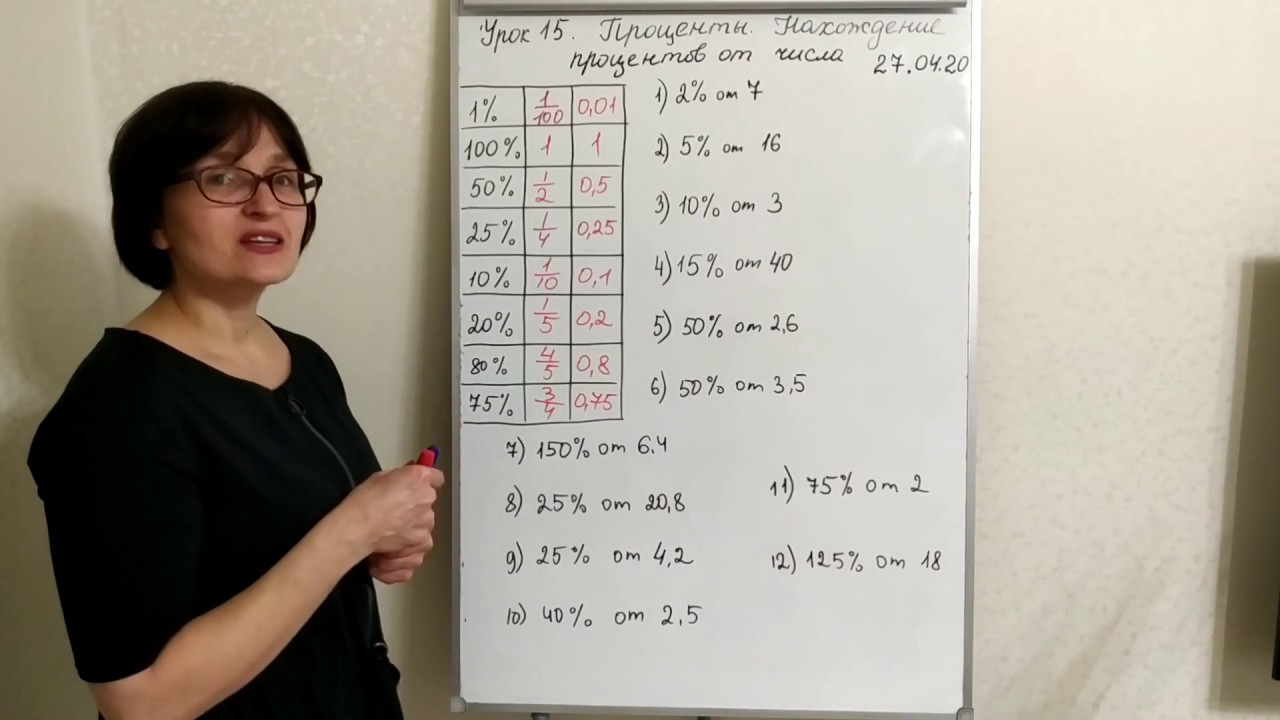 Урок 15. Проценты. Нахождение
процентов от числа 27.04.20
1% 1/100 0,01
100% 1 1
50% 1/2 0,5
25% 1/4 0,25
10% 1/10 0,1
20% 1/5 0,2
80% 4/5 0,8
75% 3/4 0,75
1) 2% от 7
2) 5% от 16
3) 10% от 3
4) 15% от 40
5) 50% от 2,6
6) 50% от 3,5
7) 150% от 6.4
8) 25% от 20,8
9) 25% от 4,2
10) 40% от 2,5
11) 75% от 2
12) 125% от 18